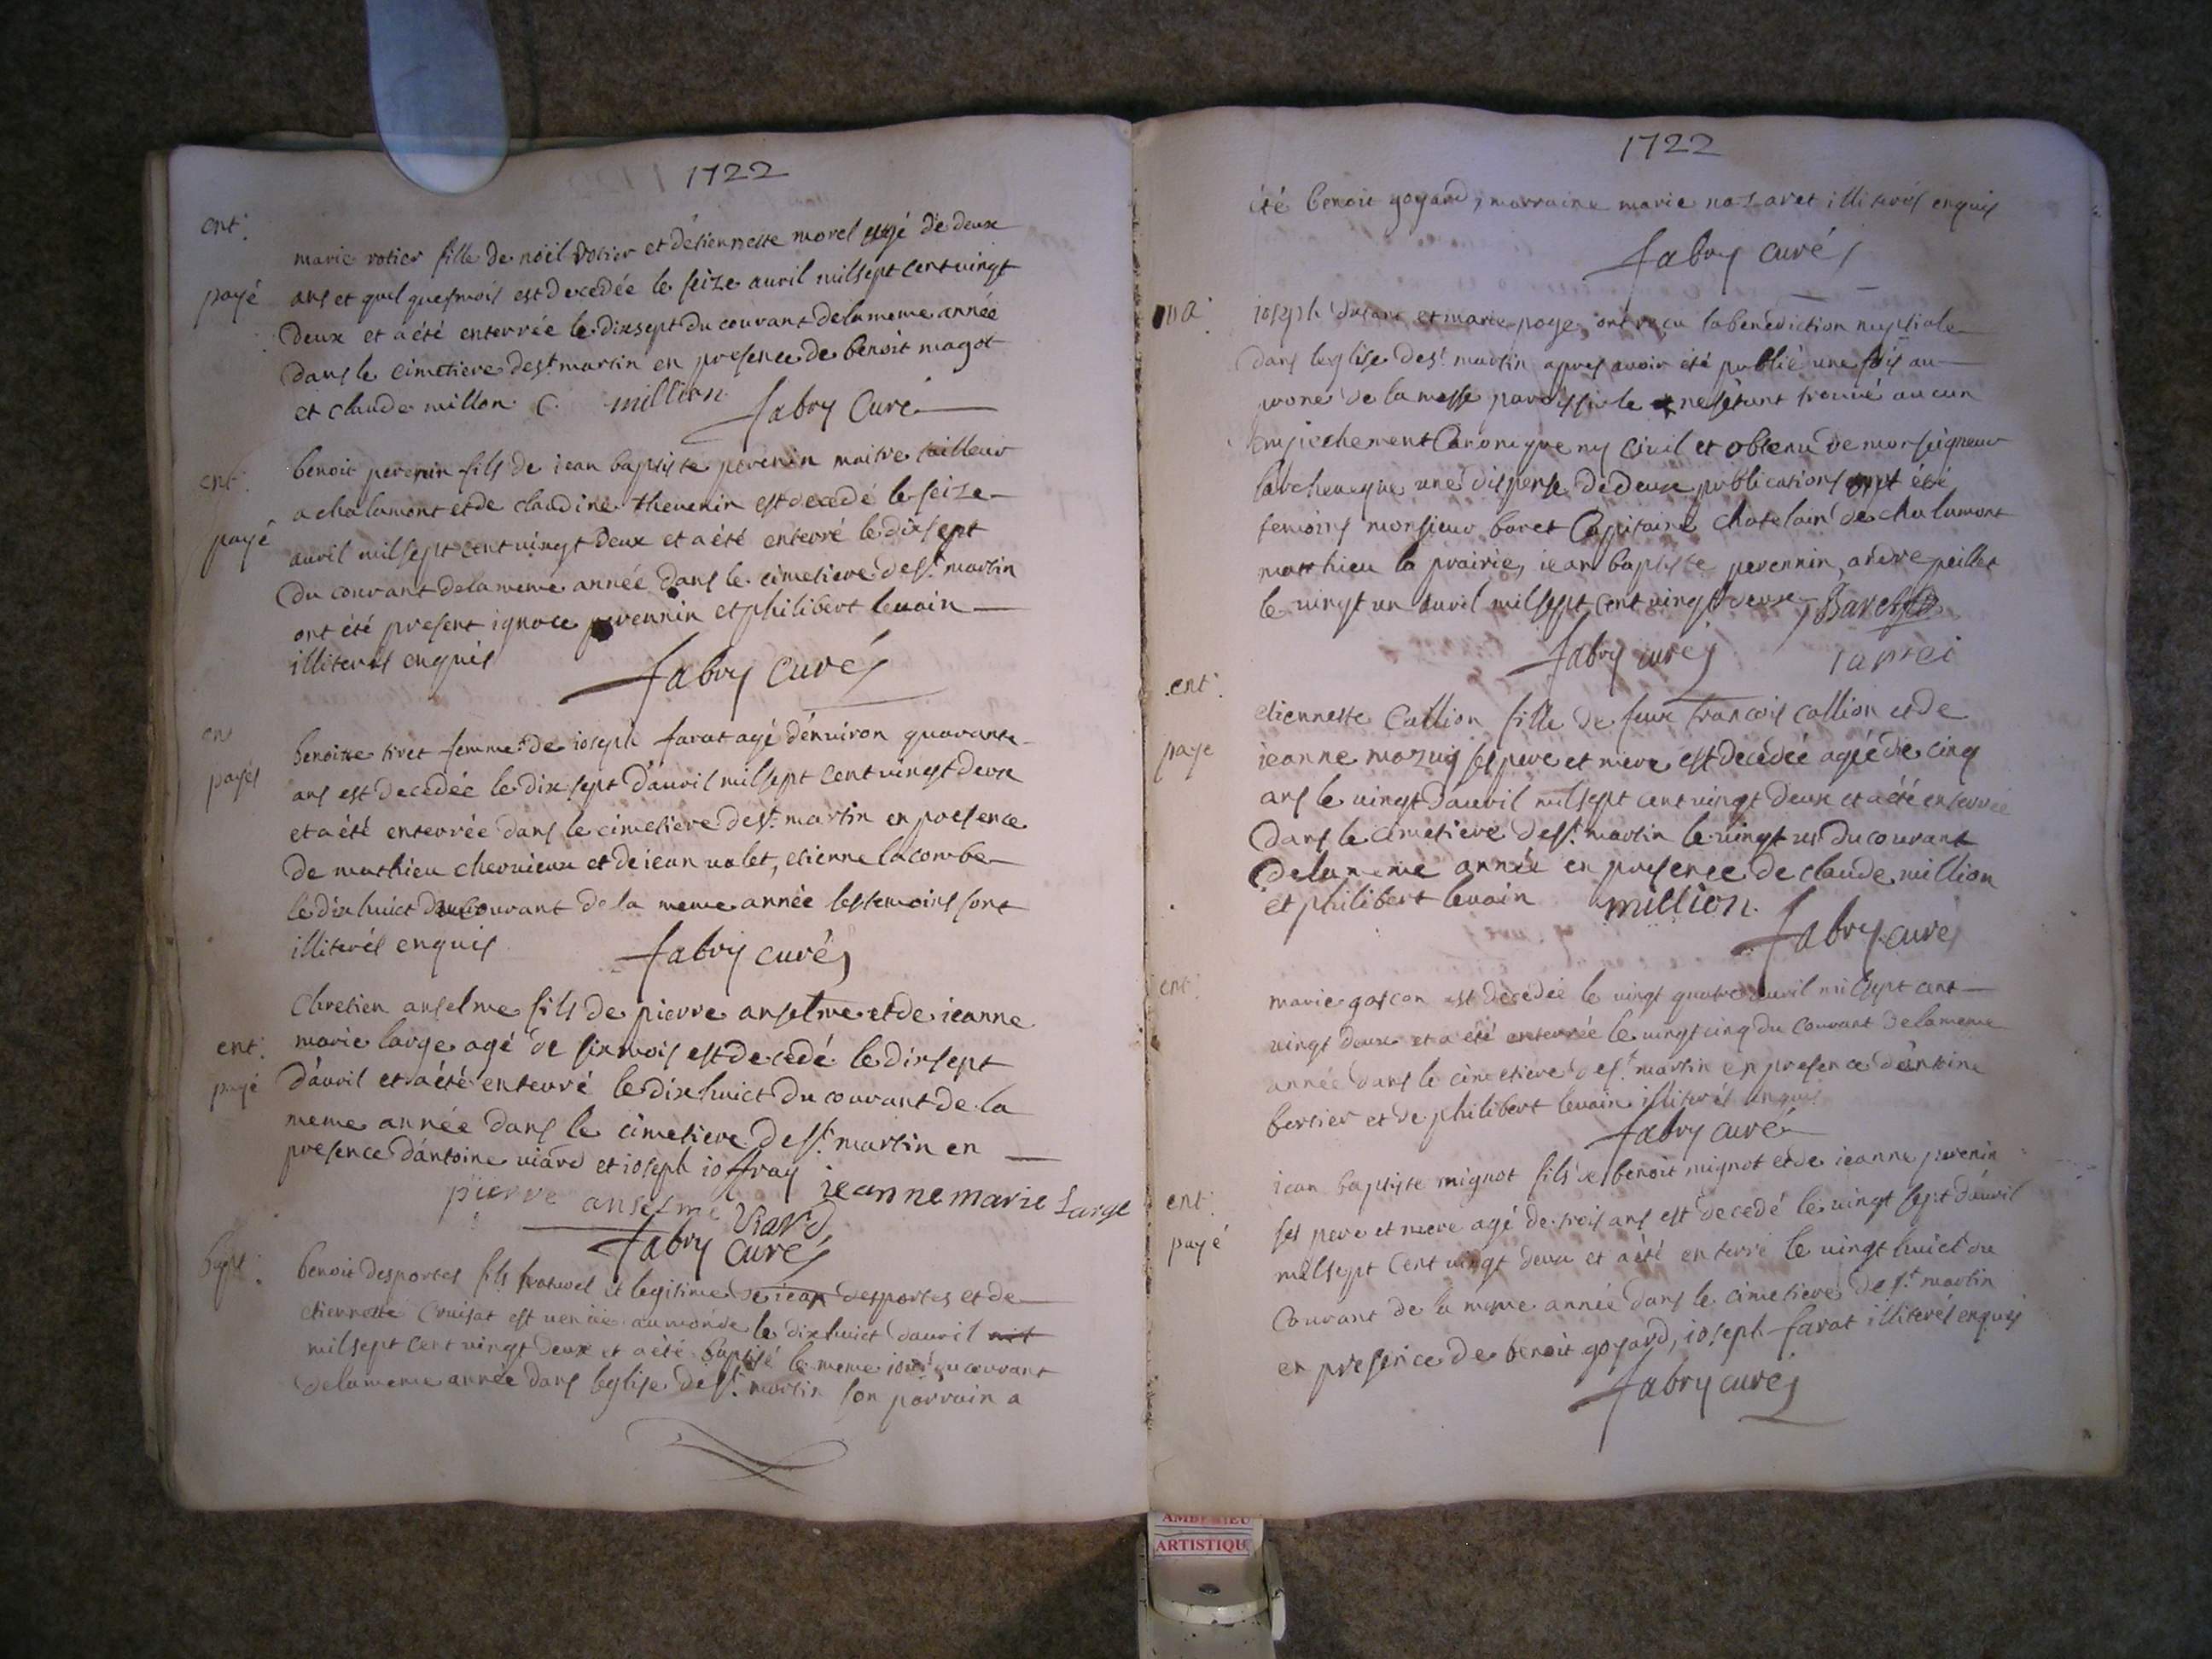 1722
ent.
marie rotier fille de noël rotier et détiennette morel agé de deux
payé
ans et quelquesmois est decedée le seize auril milsept cent uingt
deux et a été enterrée le dixsept du courant delameme année
dans le cimetiere de st. martin en presence de benoit magot
et claude millon C. million
fabry Curé
ent.
benoit perenin fils de iean baptiste perenin maitre tailleur
a chalamont et de claudine theuenin est decedé le seize
payé
auril milsept cent uingt deux et a été enterré le dixsept
du courant delameme année dans le cimetiere de st. martin
ont été present ignace perennin et philibert leuain
illiterés enquis
fabry curés
ent
benoitte tiret femme de ioseph farat agé dénuiron quarante
payés
ans est decedée le dix sept dauril milsept cent uingt deux
et a été enterrée dans le cimetiere de st. martin en presence
de mathieu cheruieux et de iean ualet, etienne lacombe
le dixhuict du courant de la meme année les temoins sont
illiterés enquis
fabry curés
Chretien anselme fils de pierre anselme et de ieanne
ent.
marie large agé de six mois est decedé le dixsept
payé
dáuril et a été enterré le dixhuict du courant de la
meme année dans le cimetiere de st. martin en
presence dántoine uiard et ioseph ioffray
pierre anselme ieanne marie Large
Viard
fabry curés
bapt.
benoit desportes fils naturel et legitime de iean desportes et de
etiennette Cruisat est uenüe au monde le dixhuict dauril mil
milsept cent uingt deux et a été baptisé le meme iour du courant
delameme année dans leglise de st. martin son parrain a
1722
été benoit goyard, marraine marie nazaret illiterés enquis
fabry curés
ma.
ioseph et marie poge ont recu la benediction nuptiale
dans leglise de st. martin apres auoir été publié une fois au
prone de la messe paroissiale ne sétant trouué aucun
Empiechement Canonique ny ciuil et obtenu de monseigneur
larcheueque une dispense de deux publications ont été
temoins monsieur baret Capitaine chatelain de chalamont
matthieu la prairie, iean baptiste perennin, andre peillet
le uingt un auril milsept cent uingt deux Baret
fabry curés
ent.
etiennette Callion fille de feux francois callion et de
paye
ieanne mazuy ses pere et mere est decedée agée de cinq
ans le uingt dauril milsept cent uingt deux et a été enterrée
dans le cimetiere de st. martin le uingt un du courant
delameme année en presence de claude million
et philibert leuain million.
fabry curés
ent.
marie gascon est decedée le uingt quatre auril milsept cent
uingt deux et a été enterrée le uingt cinq du courant delameme
année dans le cimetiere de st. martin en presence dántoine
bertier et de philibert leuain illiterés enquis
fabry curé
iean baptiste mignot fils de benoit mignot et de ieanne perenin
ent.
ses pere et mere agé de trois ans est decedé le uingt sept dauril
payé
milsept cent uingt deux et a été enterré le uingt huict du
Courant de la meme année dans le cimetiere de st. martin
en presence de benoit goyard, ioseph farat illiterés enquis
fabry curés
AMBERIEU
ARTISTIQU